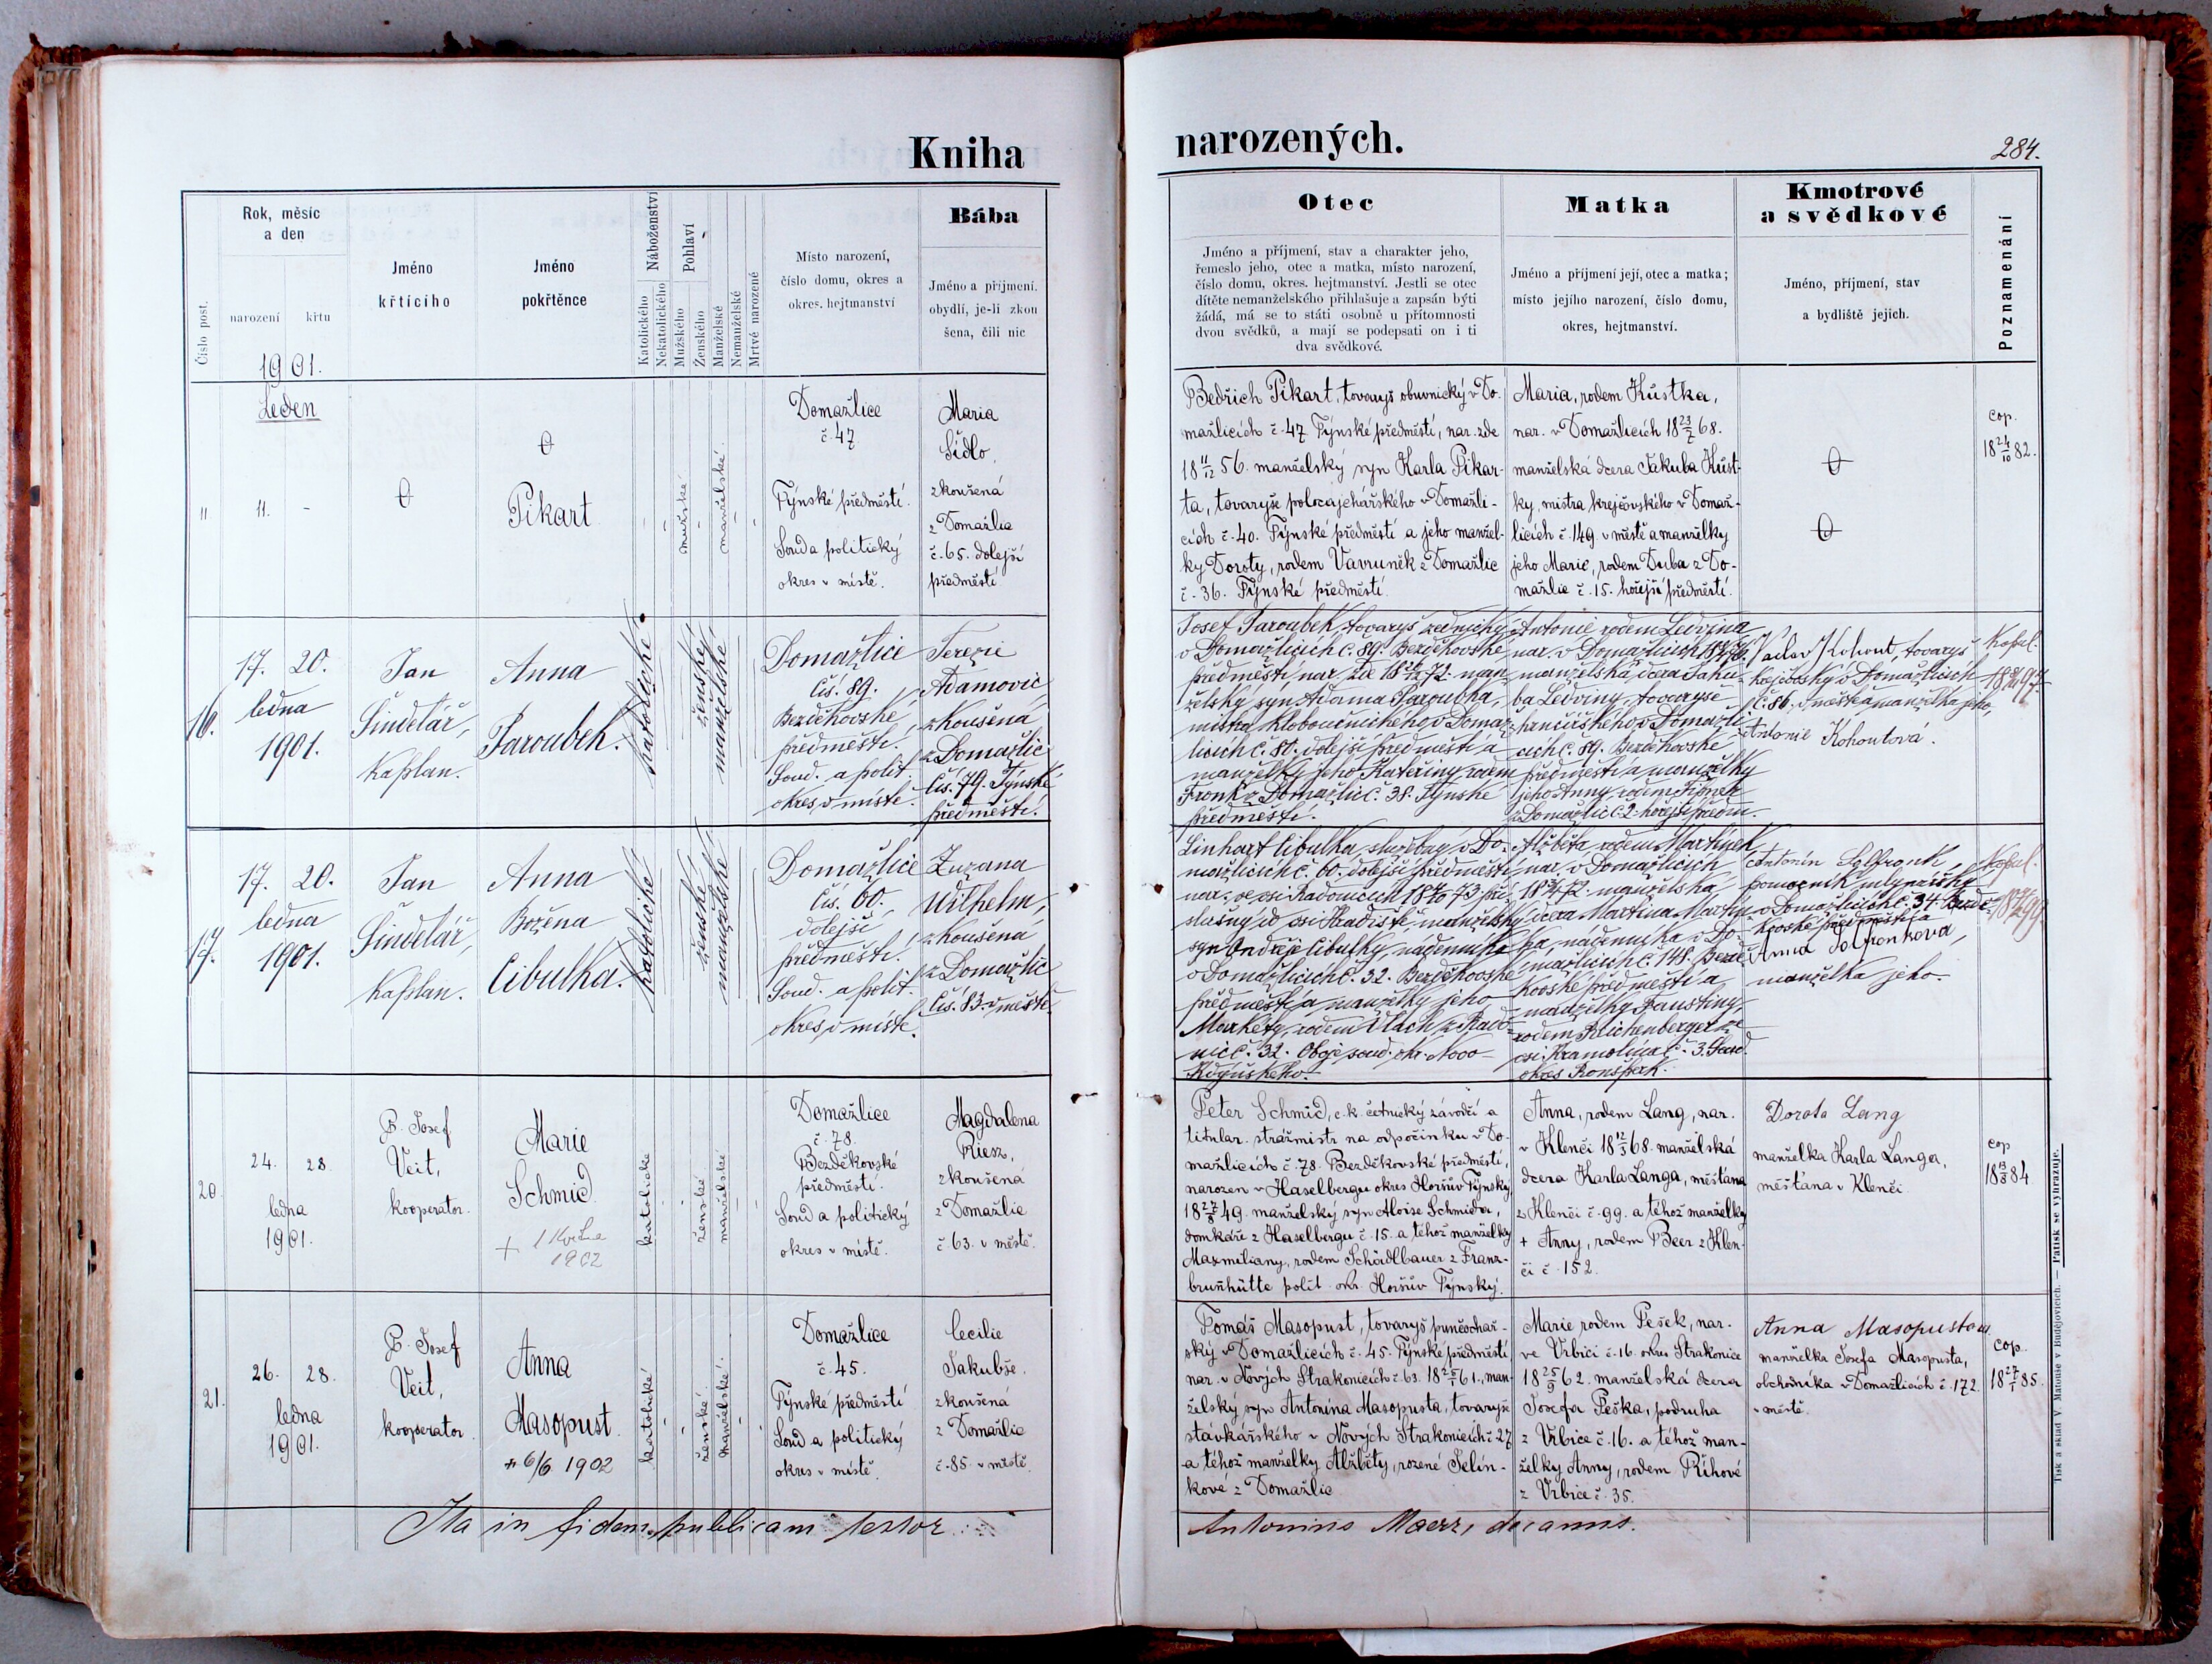 Kniha
narozených.
284.
Číslo post.
Rok, měsíc
a den
narození
křtu
Jméno
křtícího
Jméno
pokřtěnce
Náboženství
Katolického
Nekatolického
Pohlaví
Mužského
Ženského
Manželské
Nemanželské
Mrtvé narozené
Místo narození,
číslo domu, okres a
okres. hejtmanství
Bába
Jméno a příjmení,
obydlí, je-li zkou
šena, čili nic
Otec
Jméno a příjmení, stav a charakter jeho,
řemeslo jeho, otec a matka, místo narození,
číslo domu, okres. hejtmanství. Jestli se otec
dítěte nemanželského přihlašuje a zapsán býti
žádá, má se to státi osobně u přítomnosti
dvou svědků, a mají se podepsati on i ti
dva svědkové.
Matka
Jméno a příjmení její, otec a matka;
místo jejího narození, číslo domu,
okres, hejtmanství.
Kmotrové
a svědkové
Jméno, příjmení, stav
a bydliště jejich.
Poznamenání
1901.
Leden
11
11.
-
Pikart
mužské
manželské
Domažlice
č. 47
Týnské předměstí.
Soud a politický
okres v místě.
Maria
Šídlo,
zkoušená
z Domažlic
č. 65. dolejší
předměstí
Bedřich Pikart, tovaryš obuvnický v Do-
mažlicích č. 47 Týnské předměstí, nar. zde
18 11/12 56. manželský syn Karla Pikar-
ta, tovaryše
v Domažli-
cích č. 40. Týnské předměstí a jeho manžel-
ky Doroty, rodem Vavruněk z Domažlic
č. 36. Týnské předměstí.
Maria, rodem Kůstka,
nar. v Domažlicích 18 23/7 68.
manželská dcera Jakuba Kůst-
ky, mistra krejčovského v Domaž-
licích č. 149. v městě a manželky
jeho Marie, rodem Duba z Do-
mažlic č. 15. hořejší předměstí.
cop.
18 24/10 82.
16.
17. 20.
ledna
1901.
Jan
Šindelář,
kaplan.
Anna
Paroubek.
katolické
ženské
manželské
Domažlice
čís. 89.
Bezděkovské
předměstí.
Soud. a polit.
okres v místě.
Terezie
Adamovic
zkoušená
z Domažlic
čís. 79. Týnské
předměstí.
Josef Paroubek, tovaryš zednický
v Domažlicích č. 89. Bezděkovské
předměstí, nar. zde
72. man-
želský syn Adama Paroubka,
mistra kloboučnického v Domaž-
licích č. 81. dolejší předměstí a
manželky jeho Kateřiny, rodem
Frank z Domažlic č. 38. Týnské
předměstí.
Antonie rodem Ledvina
nar. v Domažlicích
manželská dcera Jaku-
ba Ledviny, tovaryše
hrnčířského v Domažli-
cích č. 89. Bezděkovské
předměstí a manželky
jeho Anny, rodem
z Domažlic č. 2. hořejší předm.
Václav Kohout, tovaryš
krejčovský v Domažlicích
č. 86. v městě a manželka jeho,
Antonie Kohoutová.
Kopul.
17.
17. 20.
ledna
1901.
Jan
Šindelář,
kaplan.
Anna
Božena
Cibulka.
katolické
ženské
manželské
Domažlice
čís. 60.
dolejší
předměstí.
Soud. a polit.
okres v místě.
Zuzana
Wilhelm,
zkoušená
z Domažlic
čís. 83. v městě.
Linhart Cibulka, služebný v Do-
mažlicích č. 60. dolejší předměstí
nar. ve vsi Radonicích
73. pří-
slušný do vsi Hradiště, manželský
syn Ondřeje Cibulky, nádenníka
v Domažlicích č. 32. Bezděkovské
předměstí a manželky jeho
Markéty, rodem Vlach z Rado-
nic č. 32. Obojí soud. okr. Novo-
Kdyňského.
Alžběta rodem Martínek
nar. v Domažlicích
72. manželská
dcera Martina Martín-
ka, nádenníka v Do-
mažlicích č. 148. Bezdě-
kovské předměstí a
manželky Faustiny,
rodem Reichenberger ze
vsi Kramolína č. 3. Soud.
okres Ronšperk.
Antonín
pomocník mlynářský
v Domažlicích č. 34 Bezdě-
kovské předměstí a
Anna
manželka jeho.
Kopul.
20.
24. 28.
ledna
1901.
P. Josef
Veit,
kooperator.
Marie
Schmid
+ 1 Května
1902
katolické
ženské
manželské
Domažlice
č. 78.
Bezděkovské
předměstí.
Soud a politický
okres v místě.
Magdalena
Riesz,
zkoušená
z Domažlic
č. 63. v městě.
Peter Schmid, c. k. četnický závodčí a
titular. strážmistr na odpočinku v Do-
mažlicích č. 78. Bezděkovské předměstí,
narozen v Haselbergu okres Horšův Týnský
18 27/8 49. manželský syn Aloise Schmida,
domkáře z Haselbergu č. 15. a téhož manželky
Maxmiliany, rodem Schärdlbauer z Franz-
brunhütte polit. okr. Horšův Týnský.
Anna, rodem Lang, nar.
v Klenči 18 12/3 68. manželská
dcera Karla Langa, měšťana
z Klenči č. 99. a téhož manželky
+ Anny, rodem Beer z Klen-
čí č. 152.
Dorota Lang
manželka Karla Langa,
měšťana v Klenči
cop.
18 13/8 84
21.
26. 28.
ledna
1901.
P. Josef
Veit,
kooperator
Anna
Masopust.
+ 6/6 1902
katolické
ženské
manželské
Domažlice
č. 45.
Týnské předměstí
Soud a politický
okres v místě.
Cecilie
Jakubše,
zkoušená
z Domažlic
č. 85 v městě.
Tomáš Masopust, tovaryš punčochář-
ský v Domažlicích č. 45. Týnské předměstí
nar. v Nových Strakonicích č. 63.
61., man-
želský syn Antonína Masopusta, tovaryše
v Nových Strakonicích č. 27
a téhož manželky Alžběty, rozené Jelín-
kové z Domažlic
Marie rodem Pešek, nar.
ve Vrbici č. 16. okres Strakonice
18 25/9 62. manželská dcera
Josefa Peška, podruha
z Vrbice č. 16. a téhož man-
želky Anny, rodem Říhové
z Vrbice č. 35.
Anna Masopustow.
manželka Josefa Masopusta,
obchodníka v Domažlicích č. 172.
v městě.
cop.
18 27/1 85.
Ita in fidem publicam testor
Antonius Maerz, decanus.
Tisk a sklad V. Matouše v Budějovicích. — Patisk se vyhrazuje.